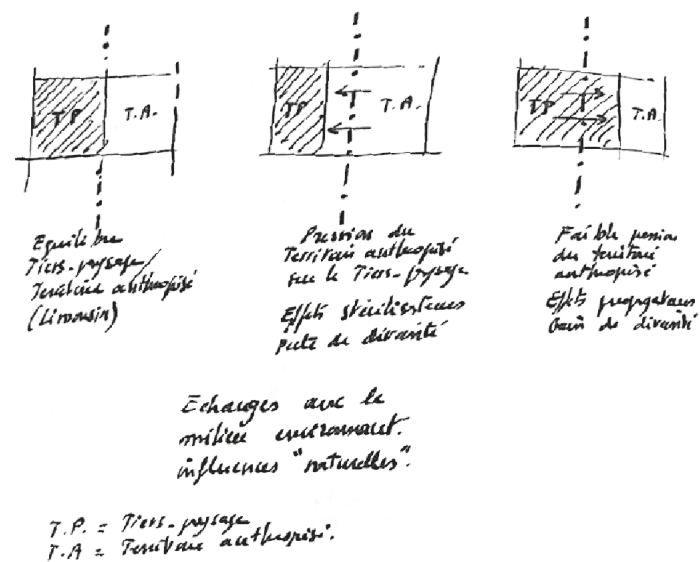 T.P.
T.A.
T.P.
T.A.
T.P.
T.A.
Equilibre
Tiers-paysage/
Territoire anthropisé
(Limousin)
Pression du
Territoire anthropisé
sur le Tiers-paysage
Effets stérilisateurs
perte de diversité
Faible pression
du territoire
anthropisé
Effets propagateurs
Gain de diversité
Echanges avec le
milieu environnant.
influences "naturelles".
T.P. = Tiers-paysage
T.A = Territoire anthropisé.